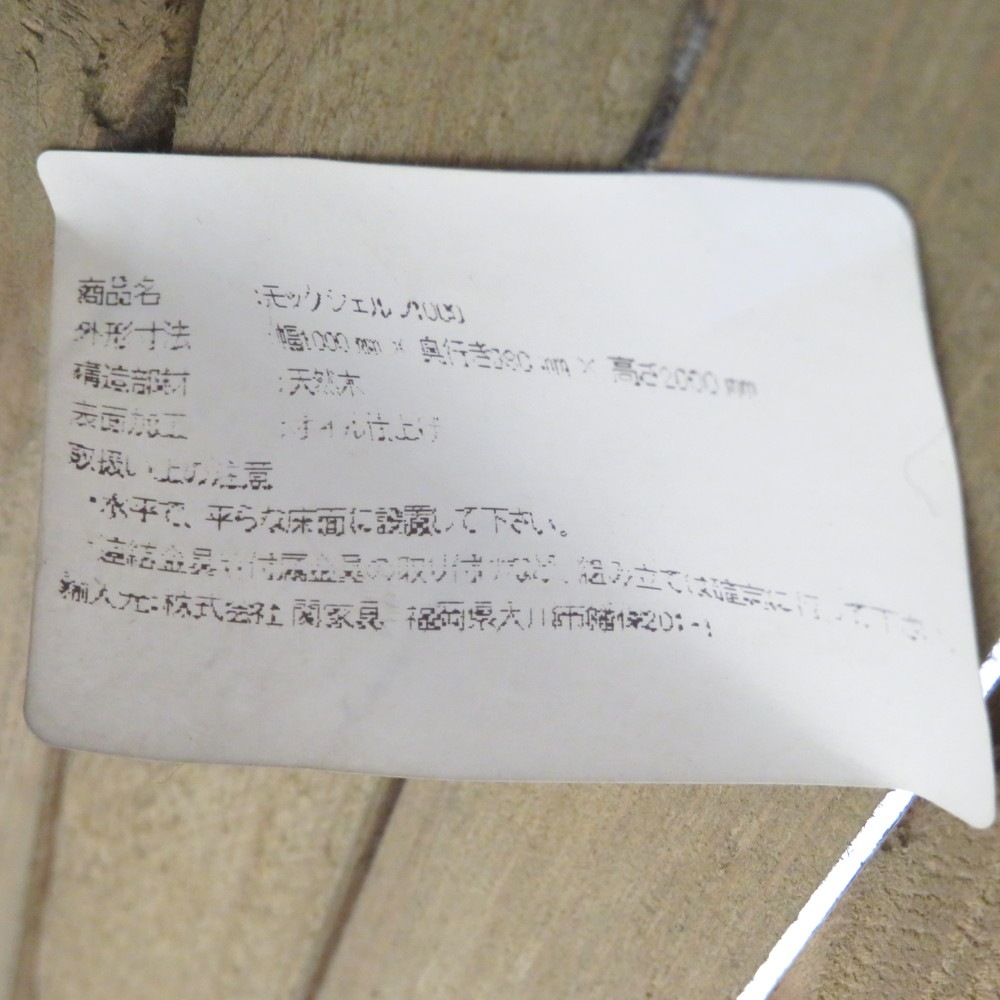 商品名 :モックシェル
外形寸法 幅 × 奥行き380㎜ × 高さ2000㎜
構造部材 :天然木
表面加工 :オイル仕上げ
取扱い上の注意
・水平で、平らな床面に設置して下さい。
・連結金具や付属金具の取り付けなど、組み立ては確実に行って下さい
輸入元:株式会社 関家具 福岡県大川市幡保201-1